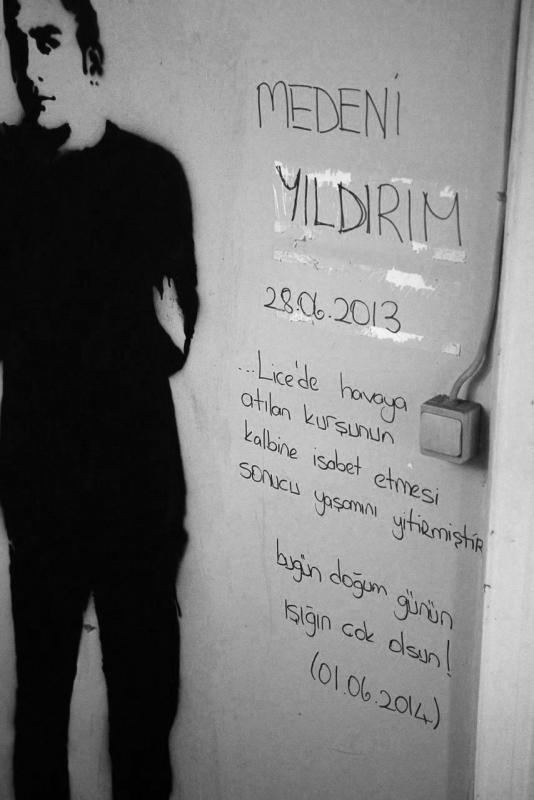 MEDENİ
YILDIRIM
28.06.2013
...Lice'de havaya
atılan kurşunun
kalbine isabet etmesi
sonucu yaşamını yitirmiştir
bugün doğum günün
ışığın çok olsun!
(01.06.2014)